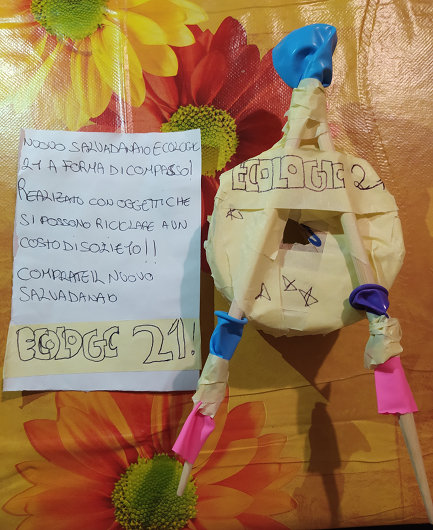 NUOVO SALVADANAIO ECOLOGIC
21 A FORMA DI COMPASSO!
REALIZATO CON OGGETTI CHE
SI POSSONO RICICLARE A UN
COSTO DI SOLI €10!!
COMPRATE IL NUOVO
SALVADANAIO
ECOLOGIC 21!
ECOLOGIC 21